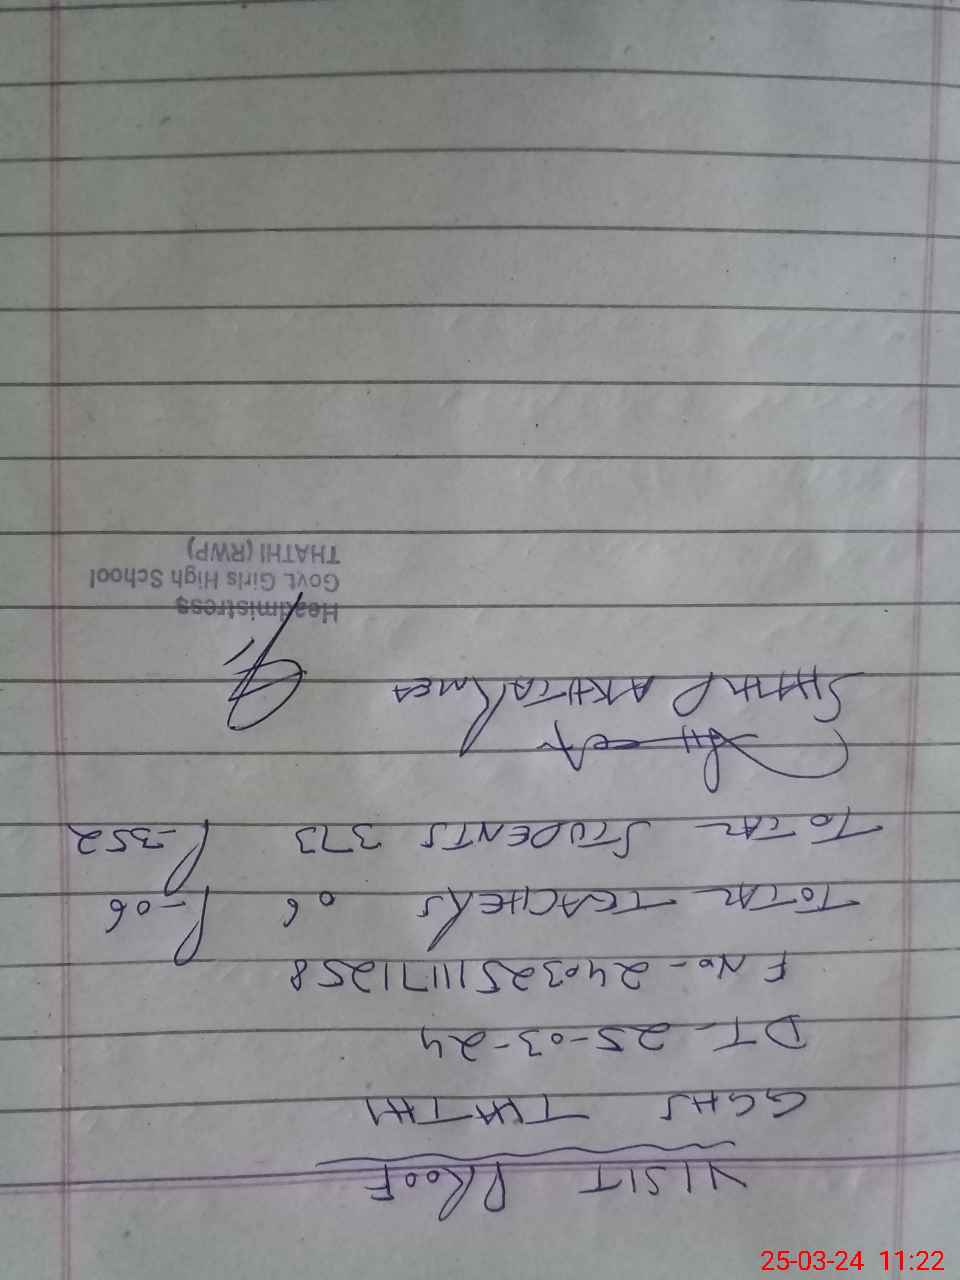 VISIT PROOF
GGHS THATHI
DT- 25-03-24
F No- 240325111711258
TOTAL TEACHERS 06 P-06
TOTAL STUDENTS 373 P-352
AKHTAR MEA
Headmistress
Govt. Girls High School
THATHI (RWP)
25-03-24 11:22